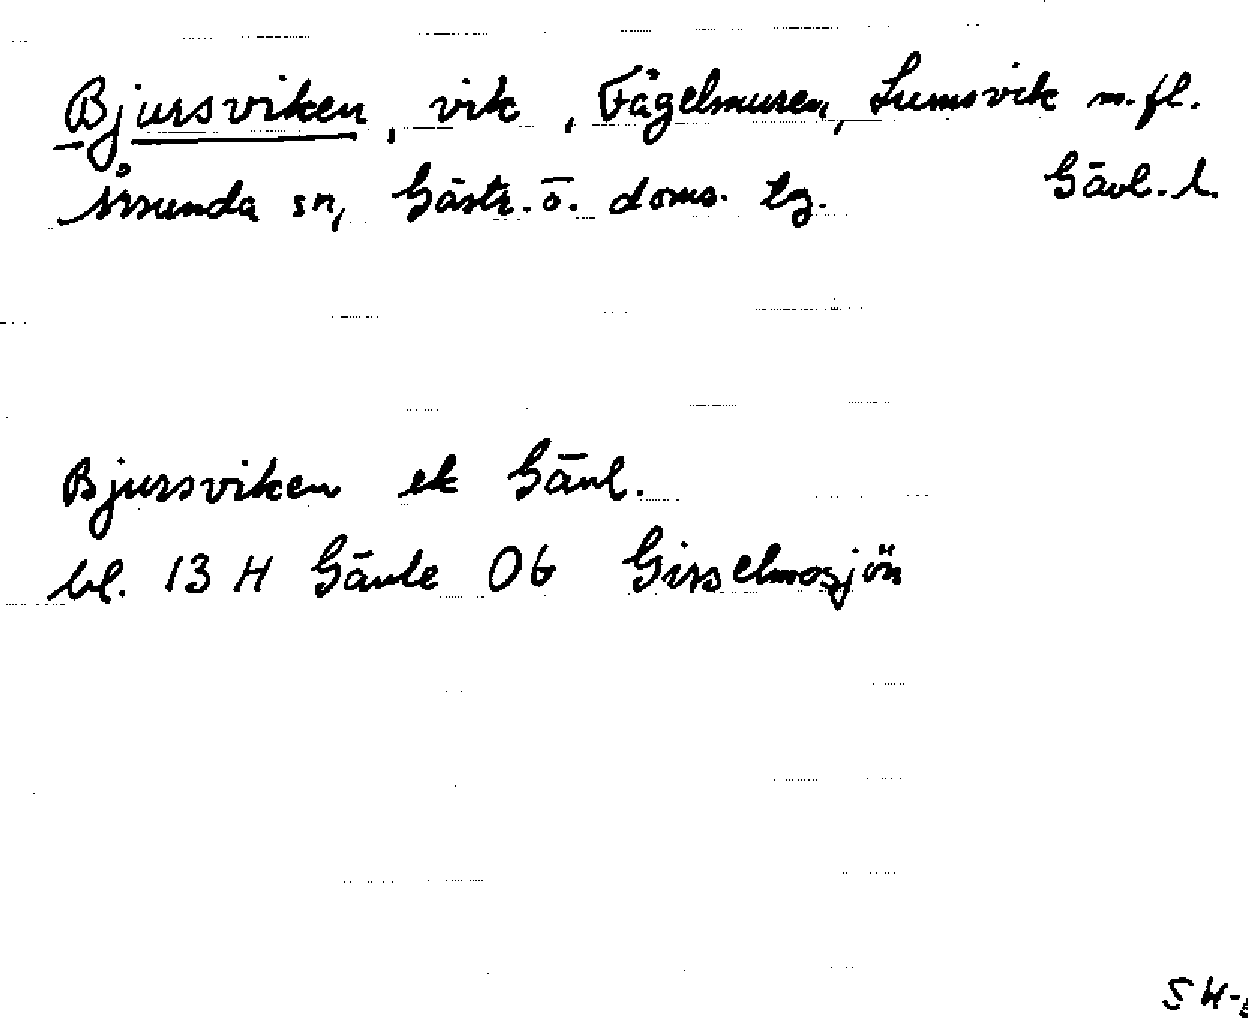 Bjursviken, vik, Fågelmuren, Lumsvik m.fl.
Årsunda sn, Gästr. ö. doms. tg. Gävl. l.
Bjursviken ek Gävl.
bl. 13 H Gävle 0b Gisselmosjön